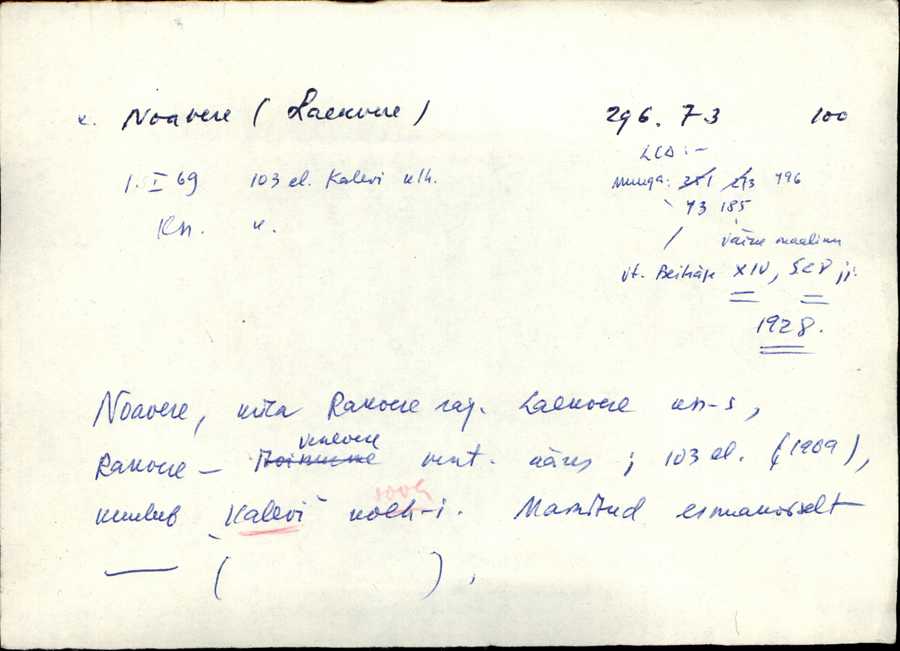 k. Noavere (Laekvere) 296. 73 100
LCD: –
1. I 69 103 el. Kalevi klh. Munga: 351 213 196
Kn. k. 43 185
väike maalinn
vt. Beiträge XIV, SCD jj.
1928.
Noavere, küla Rakvere raj. Laekvere kn-s,
Venevere
Rakvere – mnt. ääres; 103 el. (1969),
sovh
kuulub "Kalevi" kolh-i. Mainitud esmakordselt
— ( ),